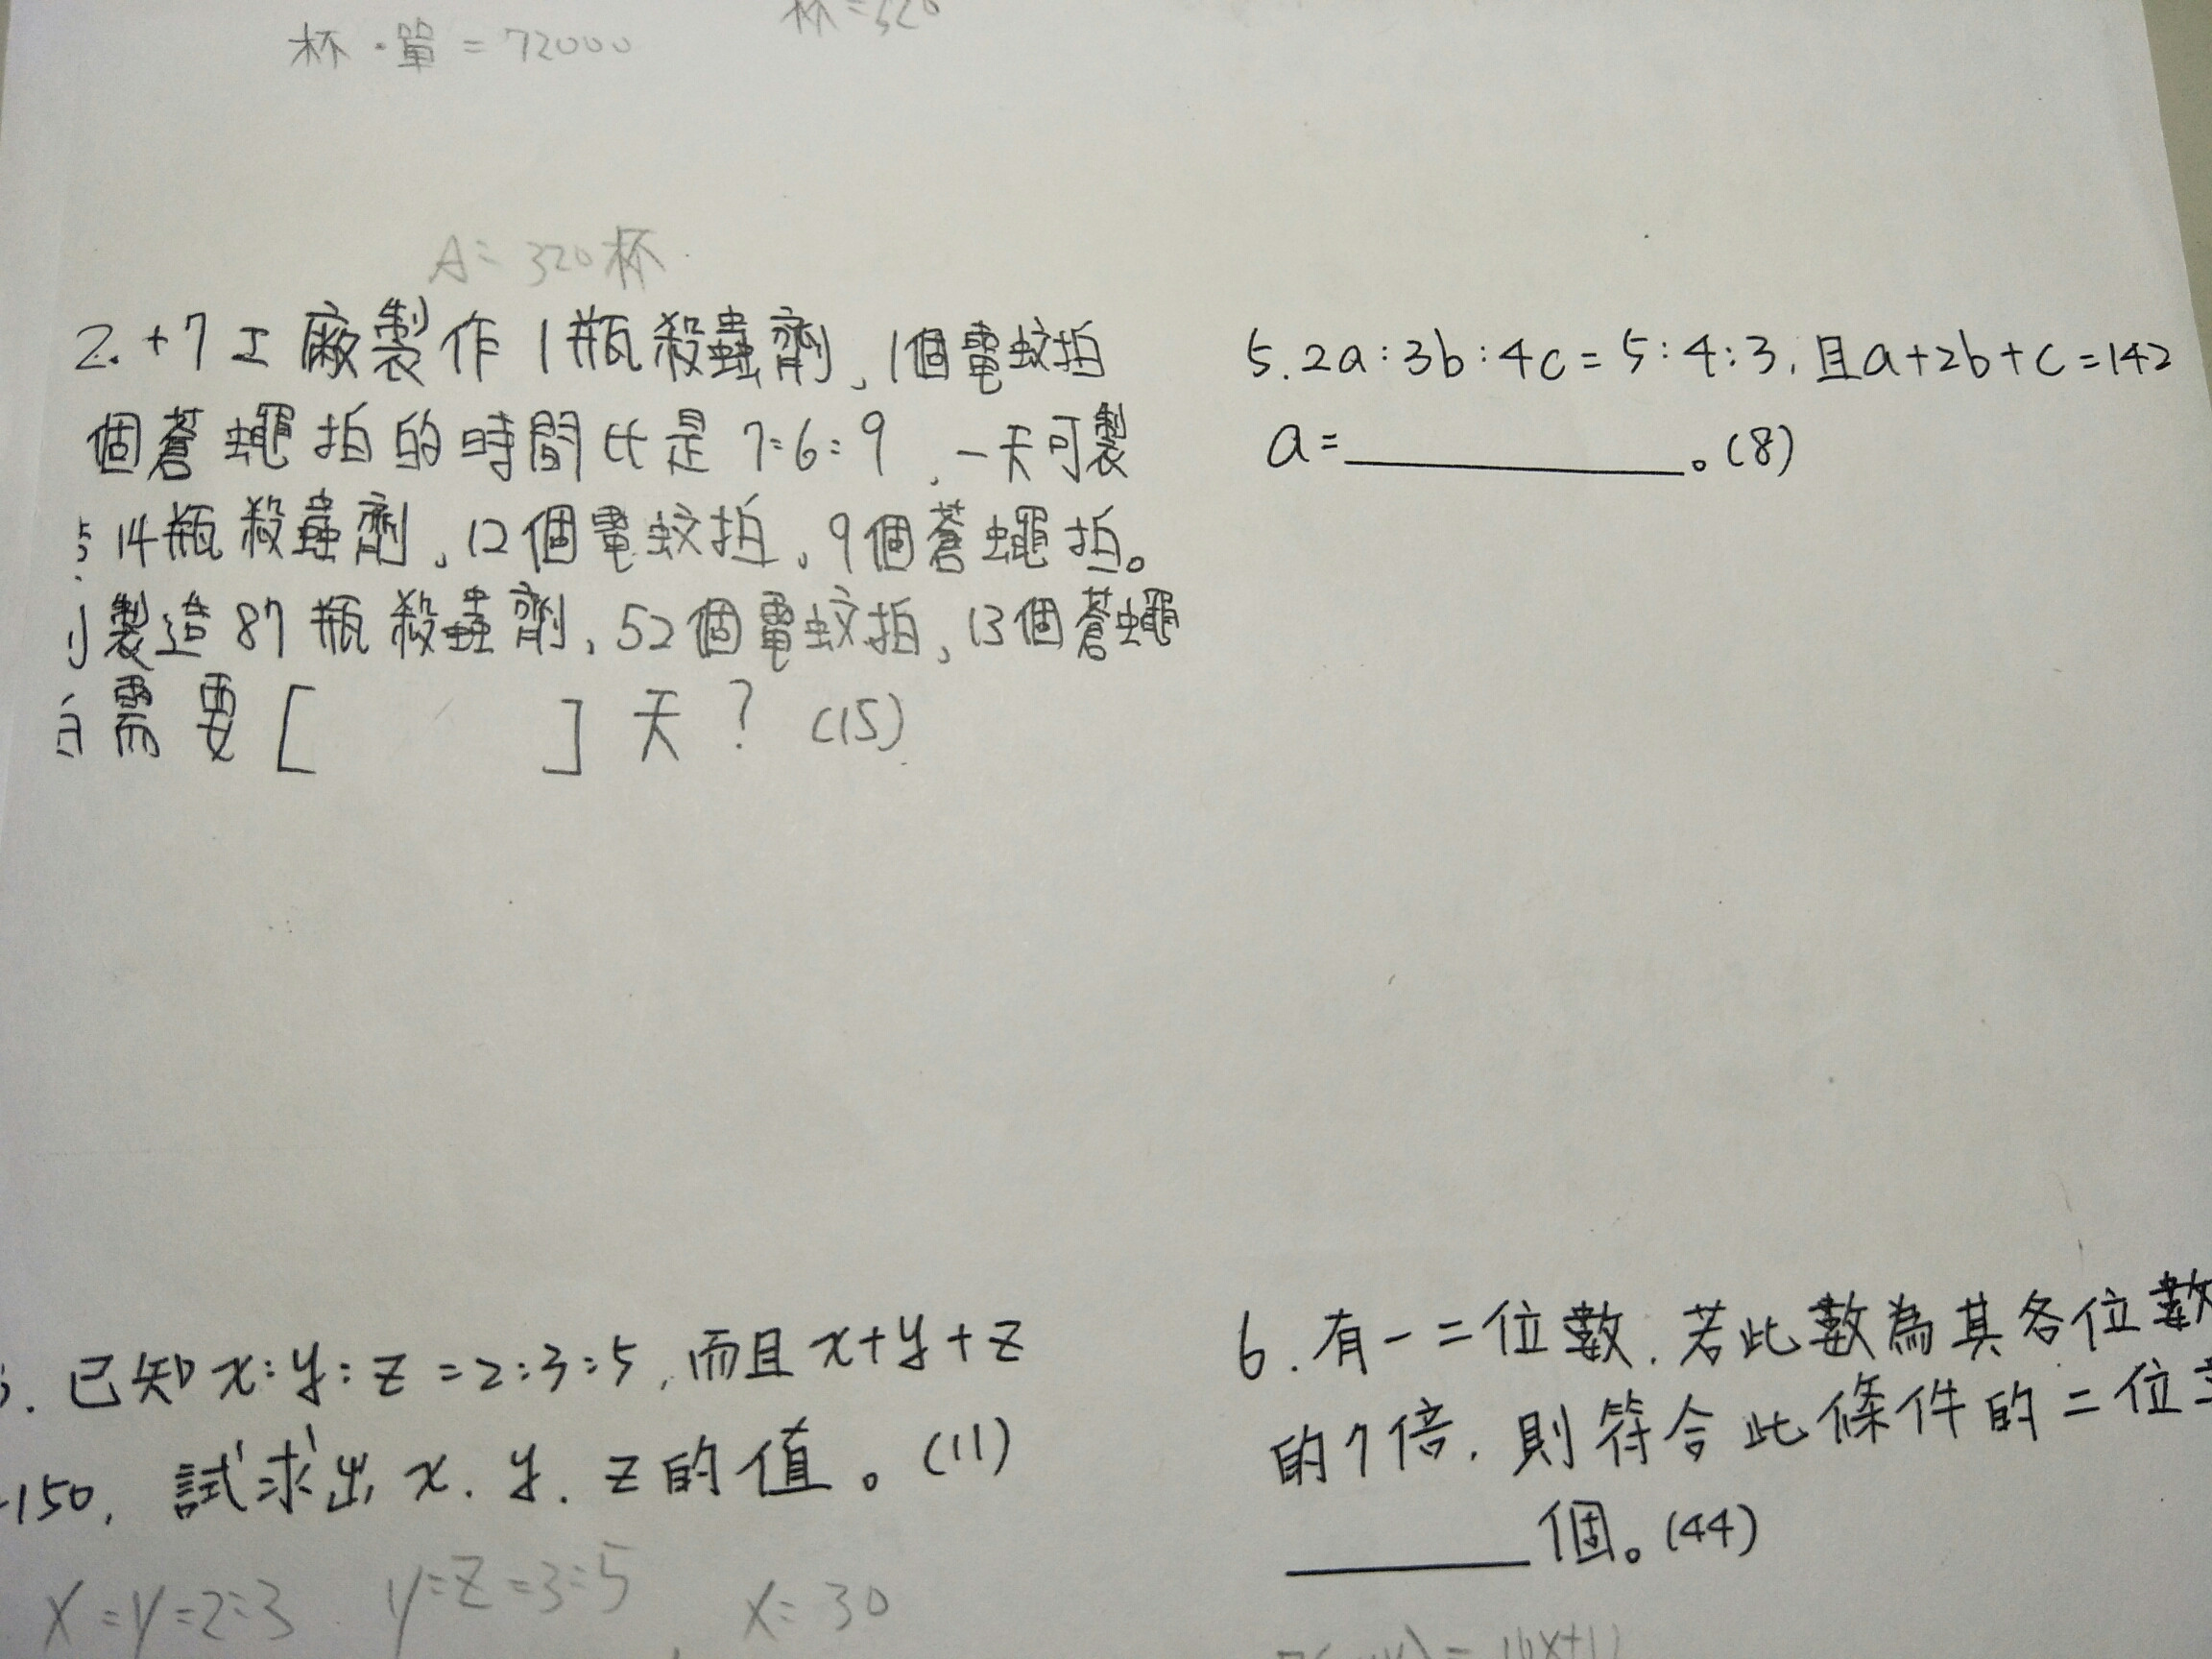 杯·單=72000
杯=320
A=320杯
2.+7工廠製作1瓶殺蟲劑、1個電蚊拍
個蒼蠅拍的時間比是7:6:9,一天可製
14瓶殺蟲劑、12個電蚊拍、9個蒼蠅拍。
製造87瓶殺蟲劑、52個電蚊拍、13個蒼蠅
需要[ ]天?(15)
. 已知x:y:z=2:3:5,而且x+y+z
150, 試求出x.y.z的值。(11)
X=y=2:3 y=z=3:5 , x=30
5.2a:3b:4c=5:4:3,且a+2b+c=142
a=______。(8)
6.有一二位數,若此數為其各位數
的7倍,則符合此條件的二位
______個。(44)